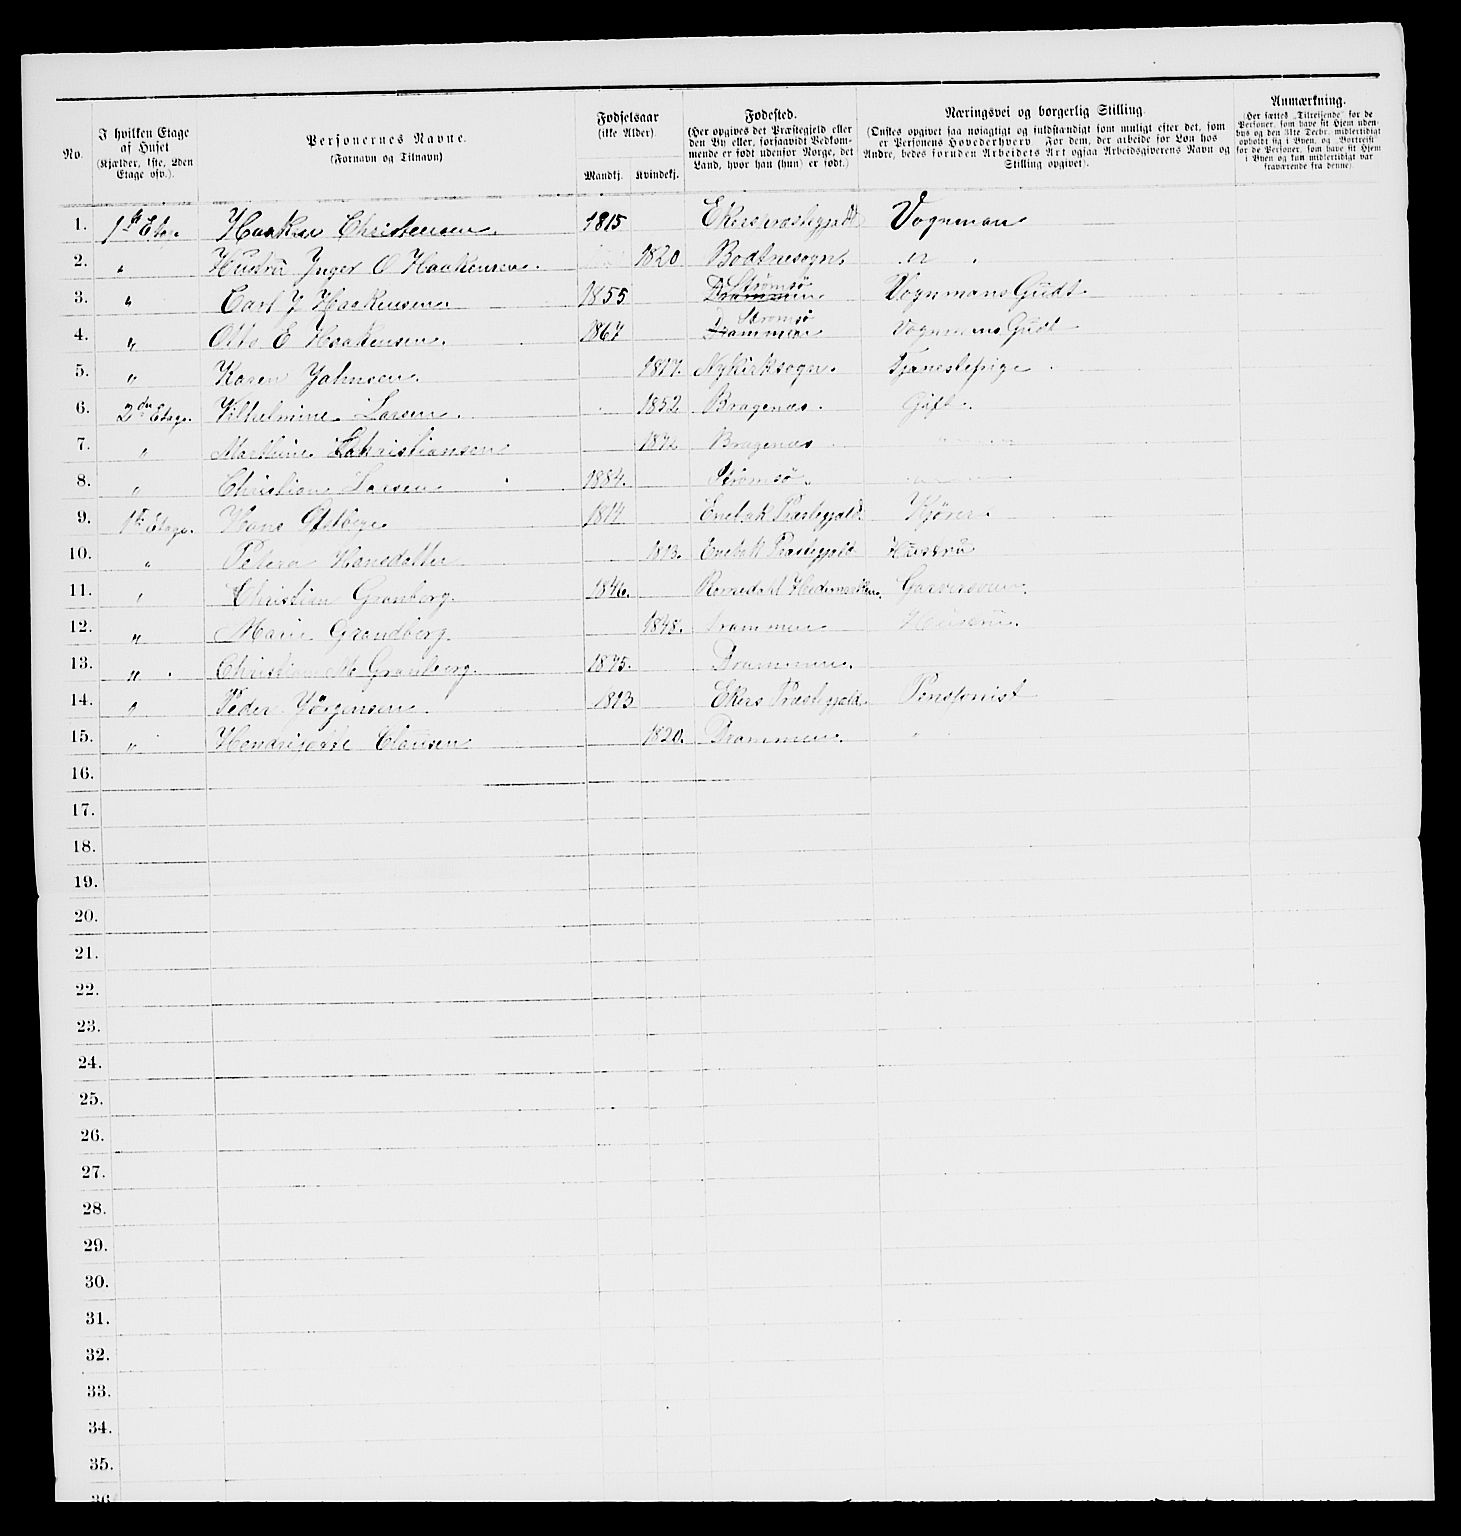 No. | I hvilken Etage af Huset (Kjælder, 1ste, 2den Etage osv.). | Personernes Navne. (Fornavn og Tilnavn) | Fødselsaar (ikke Alder) Mandkj. | Kvindekj. | Fødested. (Her opgives det Præstegjeld eller den By eller, forsaavidt Vedkommende er født udenfor Norge, det Land, hvor han (hun) er født.) | Næringsvei og borgerlig Stilling. (Ønskes opgivet saa nøiagtigt og fuldstændigt som muligt efter det, som er Personens Hovederhverv. For dem, der arbeide for Løn hos Andre, bedes foruden Arbeidets Art ogsaa Arbeidsgiverens Navn og Stilling opgivet). | Anmærkning. (Her sættes „Tilreisende" for de Personer, som have sit Hjem udenbys og den 31te Decbr. midlertidigt opholdt sig i Byen, og „Bortreist" for de Personer, som have sit Hjem i Byen og kun midlertidigt var fraværende fra denne).
1. | 1ste Etage | Haaken Christensen. | 1815 | | Ekers | Vognman
2. | " | Hustru Inger O Haakensen. | | 1820 | | "
3. | " | Carl J Haakensen | 1855 | | Drammen Strømsø | Vognmans Gudt
4. | " | Otto E Haakensen. | 1867 | | Drammen Strømsø | Vognmans Gudt
5. | " | Karen | | | Nykirksogn. | Tjenestepige
6. | 2den Etage. | Vilhelmine Larsen. | | 1852 | Bragenæs. | Gift.
7. | " | Christiansen | | | Bragenæs
8. | " | Christian Larsen | 1884. | | Strømsø.
9. | 1ste Etage. | Hans | | | Enebak Præstegjæld. | Kjører.
10. | " | Petera Hansdatter | | 1813. | Enebak Præstegjeld | Hustru
11. | " | Christian Granberg. | 1846. | | | Garversvend.
12. | " | Marie Grandberg | | 1848. | Drammen | Hustru.
13. | " | Christian M Granberg. | 1875. | | Drammen.
14. | " | Peder Jörgensen | 1813 | | Ekers Præstegjæld. | Pensionist
15. | " | Clausen | | 1820. | Drammen. | "
16.
17.
18.
19.
20.
21.
22.
23.
24.
25.
26.
27.
28.
29.
30.
31.
32.
33.
34.
35.
36